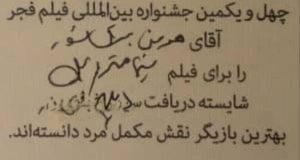 چهل و یکمین جشنواره بین‌المللی فیلم فجر
آقای
را برای فیلم سینما متروپل
شایسته دریافت سیمرغ بلورین
بهترین بازیگر نقش مکمل مرد دانسته‌اند.